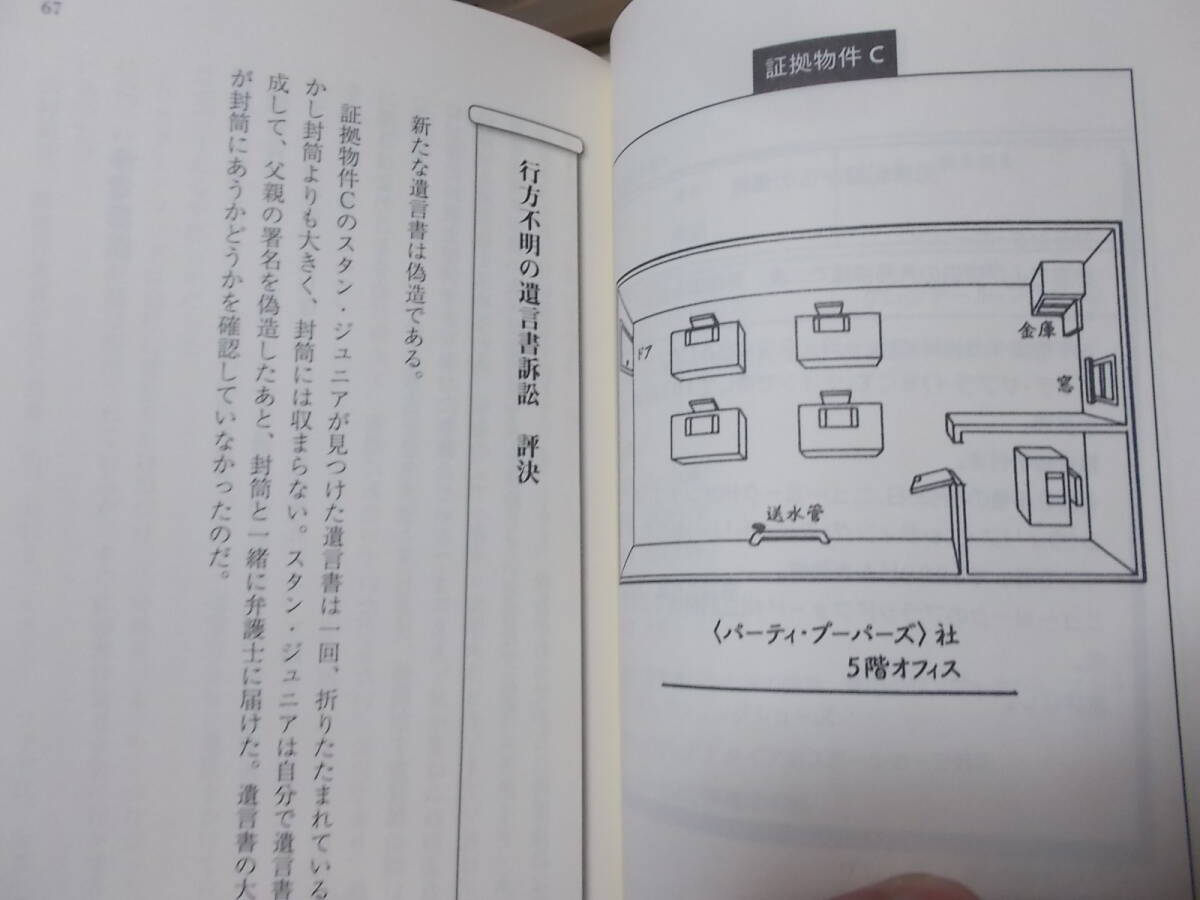 証拠物件 C
金庫
窓
ドア
送水管
〈パーティ・プーパーズ〉社
5階オフィス
67
行方不明の遺言書訴訟 評決
新たな遺言書は偽造である。
証拠物件Cのスタン・ジュニアが見つけた遺言書は一回、折りたたまれている
かし封筒よりも大きく、封筒には収まらない。スタン・ジュニアは自分で遺言書
成して、父親の署名を偽造したあと、封筒と一緒に弁護士に届けた。遺言書の大
が封筒にあうかどうかを確認していなかったのだ。